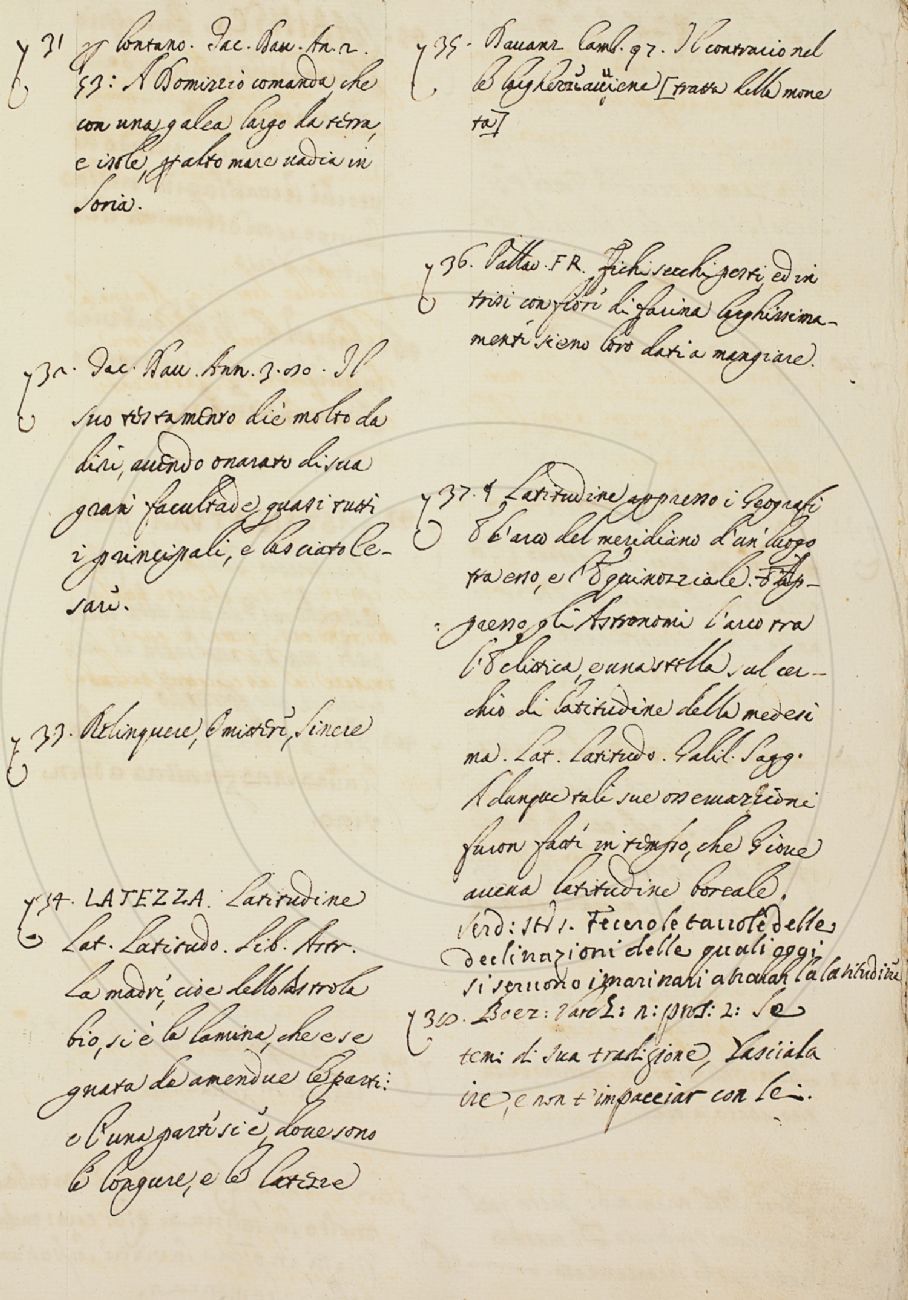 31 p lontano. Tac. Dav. An. 2.
53: A Domizzio comanda che
con una galea largo da terra,
e isole, p alto mare vadia in
Soria.
32. Tac. Dav. Ann. 3. 0
Il
suo testamento diè molto da
dire, avendo onarato di sua
gran facultade quasi tutti
i principali, e lasciatole-
sari.
33. Relinquere, Omittere, Sinere
34. LATEZZA. Latitudine
Lat. Latitudo. Lib. Astr.
La madre, cioè dello Astrola
bio, si è la lamina, che e se
gnata de amendue le parti:
e l'una parte si è, dove sono
le longure, e le latezze
35. Davanz. Camb. 97. Il contracio nel
le larghezze aviene [tratta della mone
ta]
36. Pallad. FR. Fichi secchi pesti, ed in
trisi con fiore di farina larghissima-
mente sieno loro dati a mangiare.
37. § Latitudine appresso i Geografi
È l'arco del meridiano d'un luogo
tra esso, e l'Equinozziale. E Ap-
presso gli Astronomi l'arco tra
l'Eclitica, e una stella sul cer-
chio di latitudine della medesi
ma. Lat. Latitudo. Galil. Sagg.
Adunque tali sue osservazzioni
furon fatte in tempo, che Giove
aveva latitudine boreale.
Serd: St: 1. Fecero le tavole delle
declinazioni delle quali oggi
si servono i marinari a la latitudine
Boez: Varch: 2: pros: 2: Se
temi di sua tradigione, Lasciala
ire, e non t'impacciar con lei.